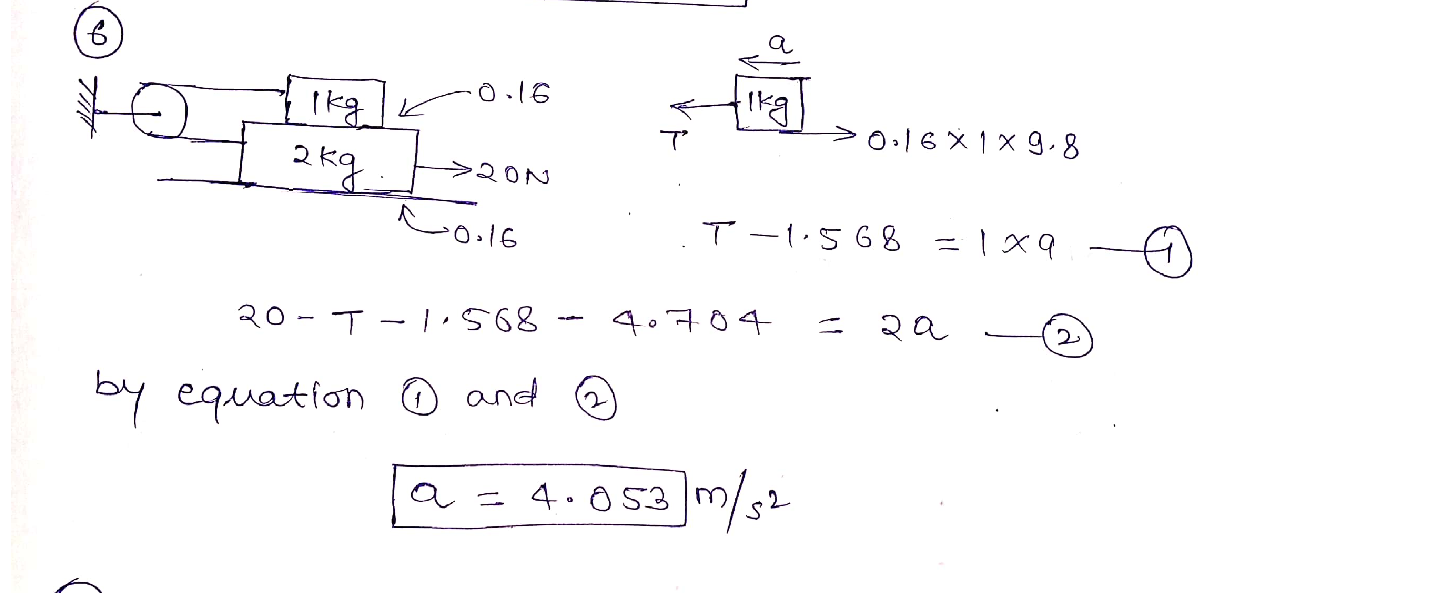 6
a
1kg 0.16 1kg
T 0.16 × 1 × 9.8
2kg 20N
0.16
T - 1.568 = 1 × a — 1
20 - T - 1.568 - 4.704 = 2a — 2
by equation 1 and 2
a = 4.053 m/s2